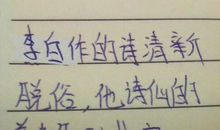 李白作的诗清新
脱俗，他诗仙的